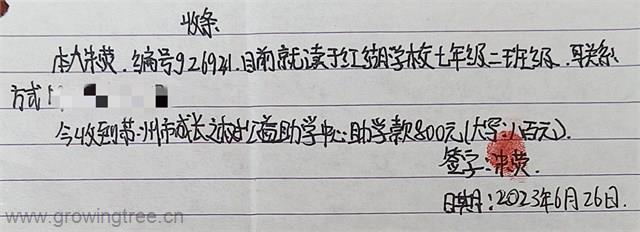 收条
本人朱荧.编号926941.目前就读于红湖学校七年级二班级.联系
方式1
今收到苏州市成长之树公益助学中心助学款800元(大写:八百元).
签字:朱荧.
日期:2023年6月26日.
www.growingtree.cn